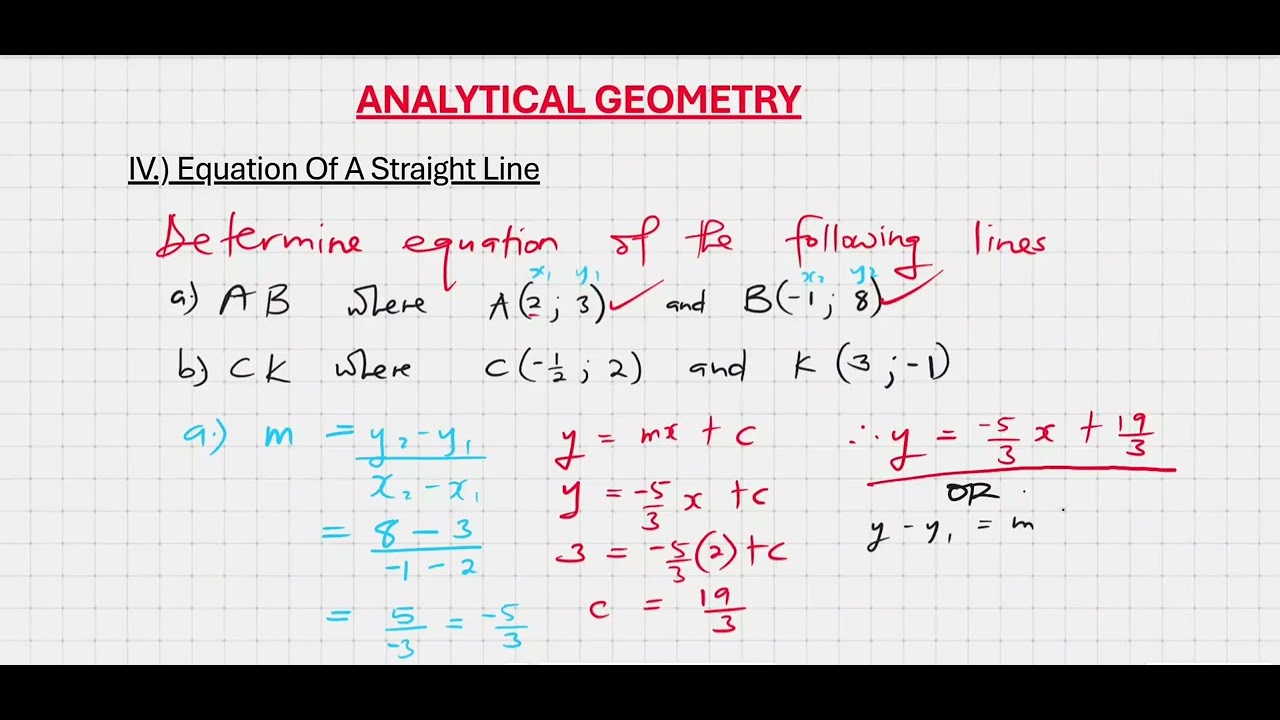 ANALYTICAL GEOMETRY
IV.) Equation Of A Straight Line
Determine equation of the following lines
x₁ y₁ x₂ y₂
a.) AB where A(2 ; 3) ✓ and B(-1 ; 8) ✓
b) CK where C(-1/2 ; 2) and K (3 ; -1)
a.) m = y₂ - y₁ / x₂ - x₁
= 8 - 3 / -1 - 2
= 5/-3 = -5/3
y = mx + c
y = -5/3 x + c
3 = -5/3 (2) + c
c = 19/3
∴ y = -5/3 x + 19/3
OR
y - y₁ = m